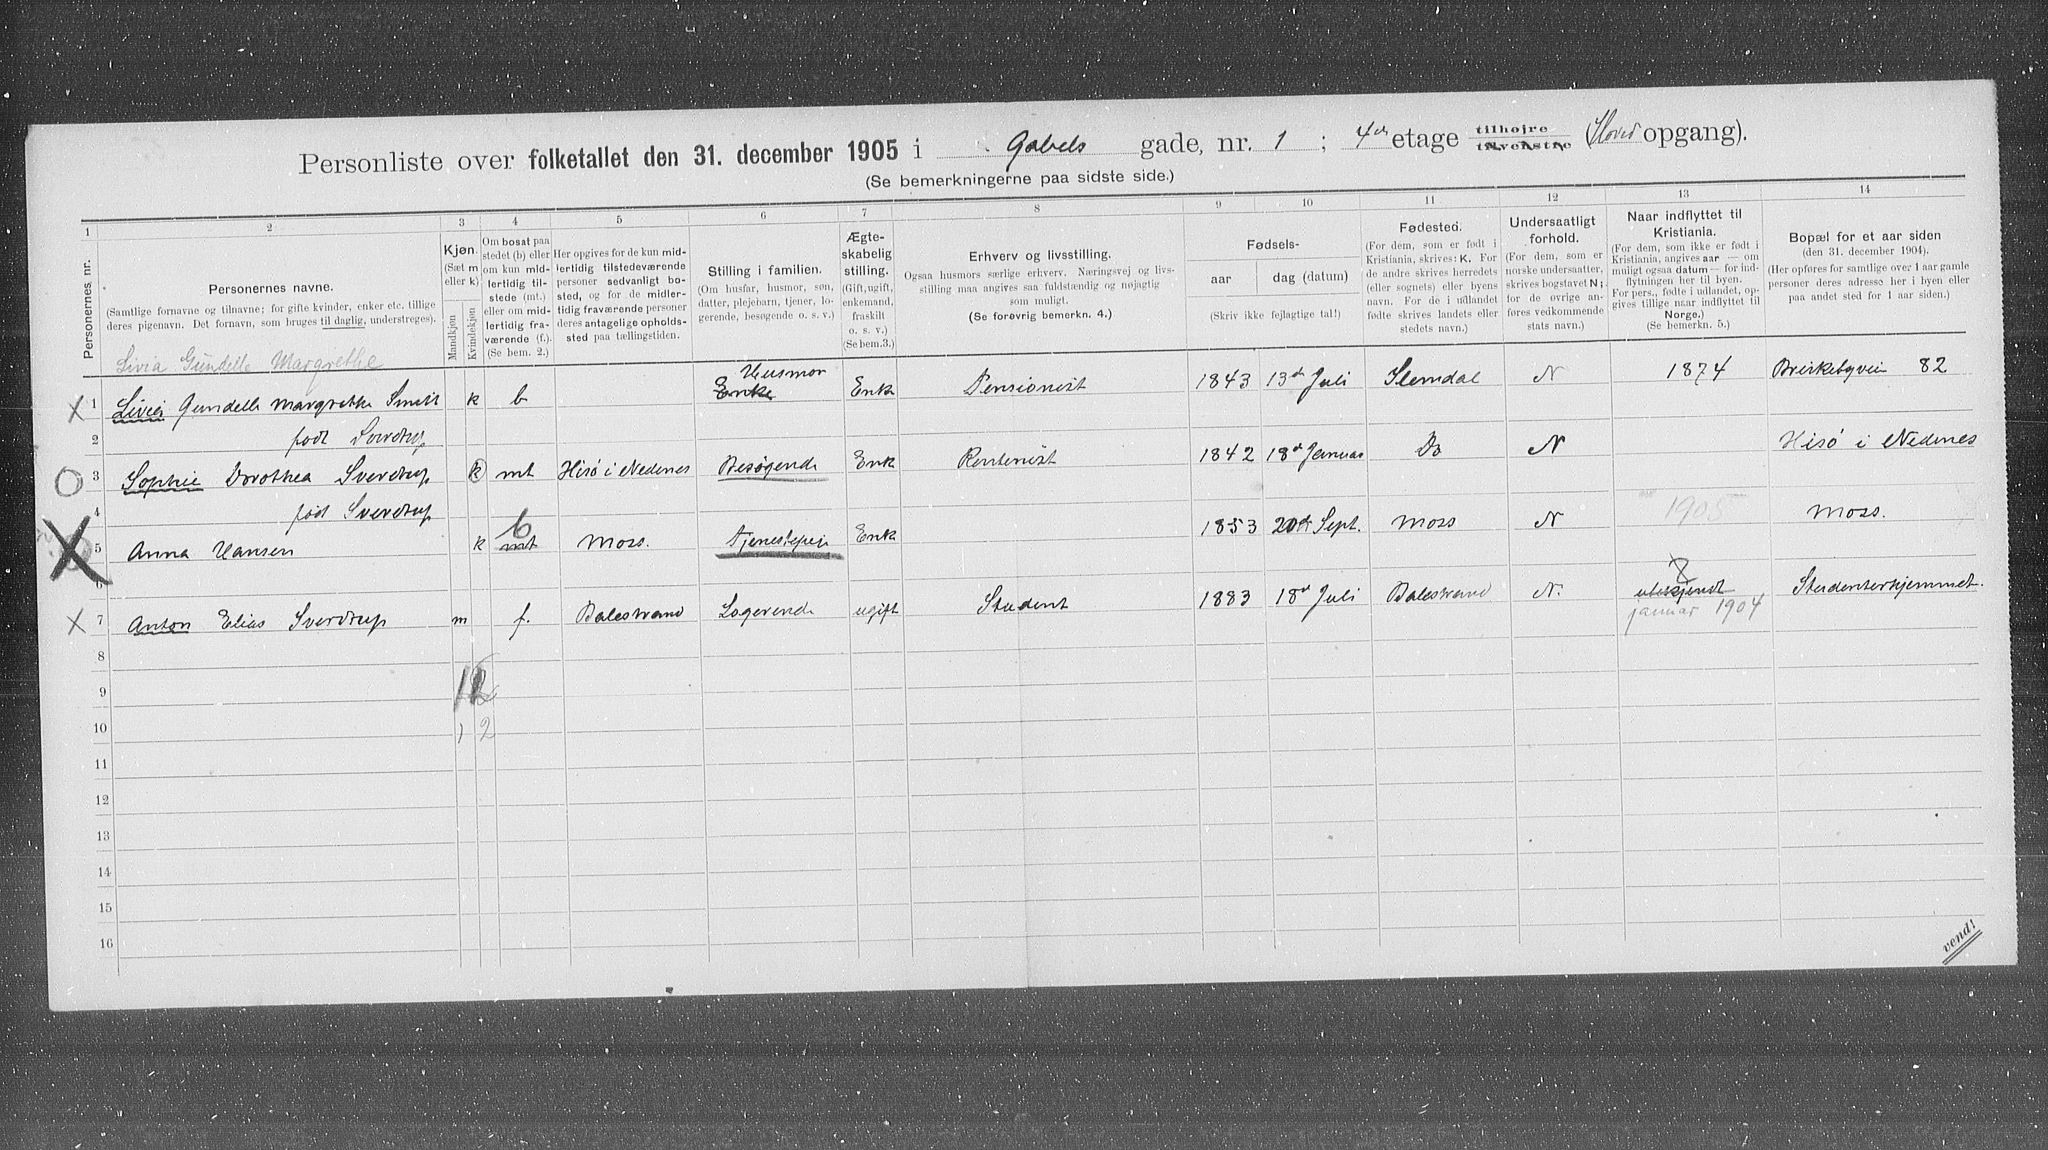 Personliste over folketallet den 31. december 1905 i Gabels gade, nr. 1 ; 4de etage tilhøjre tilvenstre (Hoved opgang).
(Se bemerkningerne paa sidste side.)
1 2 3 4 5 6 7 8 9 10 11 12 13 14
Personernes nr.
Personernes navne.
(Samtlige fornavne og tilnavne; for gifte kvinder, enker etc. tillige
deres pigenavn. Det fornavn, som bruges til daglig, understreges).
Kjøn.
(Sæt m
eller k)
Mandkjøn
Kvindekjøn
Om bosat paa
stedet (b) eller
om kun mid-
lertidig til-
stede (mt.)
eller om mid-
lertidig fra-
værende (f.).
(Se bem. 2.)
Her opgives for de kun mid-
lertidig tilstedeværende
personer sedvanligt bo-
sted, og for de midler-
tidig fraværende personer
deres antagelige opholds-
sted paa tællingstiden.
Stilling i familien.
(Om husfar, husmor, søn,
datter, plejebarn, tjener, lo-
gerende, besøgende o. s. v.)
Ægte-
skabelig
stilling.
(Gift, ugift,
enkemand,
fraskilt
o. s. v.)
(Se bem. 3.)
Erhverv og livsstilling.
Ogsaa husmors særlige erhverv. Næringsvej og livs-
stilling maa angives saa fuldstændig og nøjagtig
som muligt.
(Se forøvrig bemerkn. 4.)
Fødsels-
aar
dag (datum)
(Skriv ikke fejlagtige tal!)
Fødested.
(For dem, som er født i
Kristiania, skrives: K. For
de andre skrives herredets
(eller sognets) eller byens
navn. For de i udlandet
fødte skrives landets eller
stedets navn.)
Undersaatligt
forhold.
(For dem, som er
norske undersaatter,
skrives bogstavet N;
for de øvrige an-
føres vedkommende
stats navn.)
Naar indflyttet til
Kristiania.
(For dem, som ikke er født i
Kristiania, angives aar — om
muligt ogsaa datum — for ind-
flytningen her til byen.
For pers., fødte i udlandet, op-
gives tillige naar indflyttet til
Norge.)
(Se bemerkn. 5.)
Bopæl for et aar siden
(den 31. december 1904).
(Her opføres for samtlige over 1 aar gamle
personer deres adresse her i byen eller
paa andet sted for 1 aar siden.)
Livia Gundelle Margrethe
Husmor
1 Livia Gundelle Margrethe Smitt k b Enke Enk Pensionist 1843 13de Juli Slemdal N 1874 Briskebyvei 82
2 født Sverdrup
3 Sophie Dorothea Sverdrup k mt Hisö i Nedenes Besøgende Enk Rentenist 1842 18de Januar Do N Hisö i Nedenes
4 født Sverdrup
b
5 Anna Hansen k mt Moss. Tjenestepie Enk 1853 20de Sept. Moss N 1905 Moss.
6
7 Anton Elias Sverdrup m f. Balestrand Logerende ugift Student 1883 18de Juli Balestrand N. ubekjendt Studenterhjemmet.
januar 1904
8
9
10 1 2
11
12
13
14
15
16
vend!